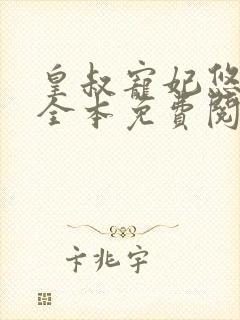 皇叔寵妃悠
全本免費閱
卞兆宇